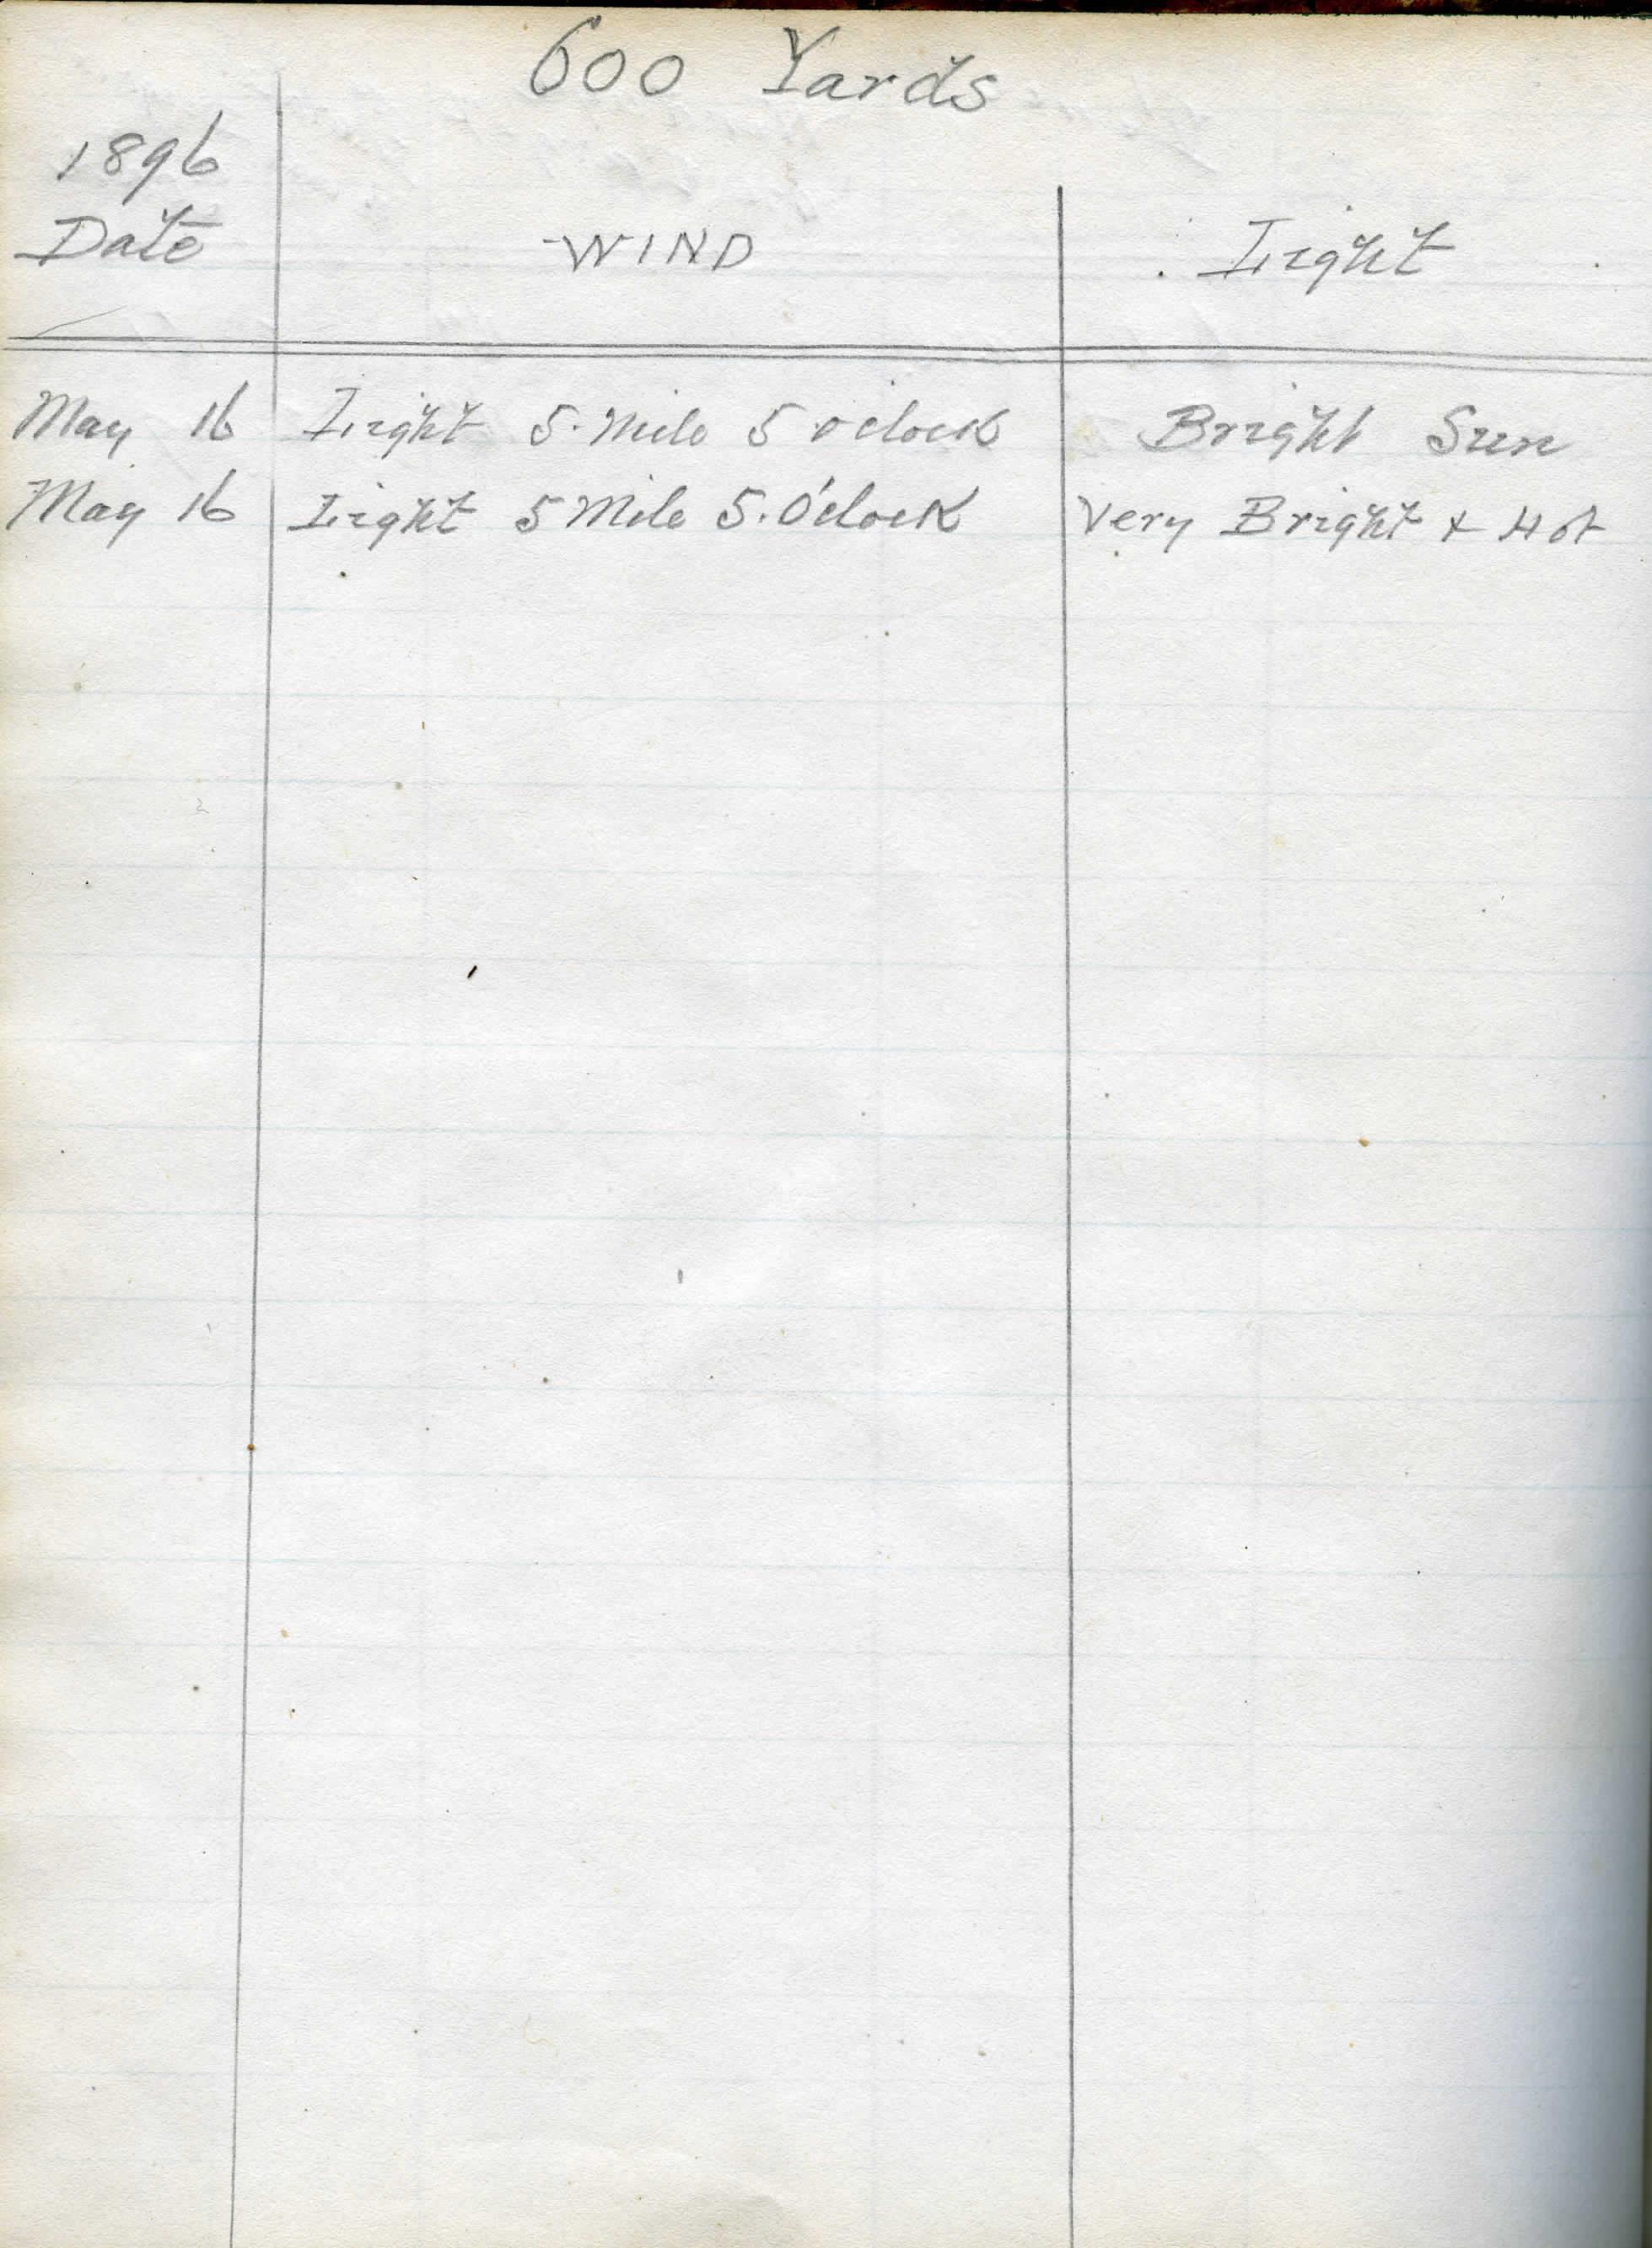 600 Yards
1896
Date WIND Light
May 16 Light 5. Mile 5 o'clock Bright Sun
May 16 Light 5 Mile 5. O'clock Very Bright & Hot